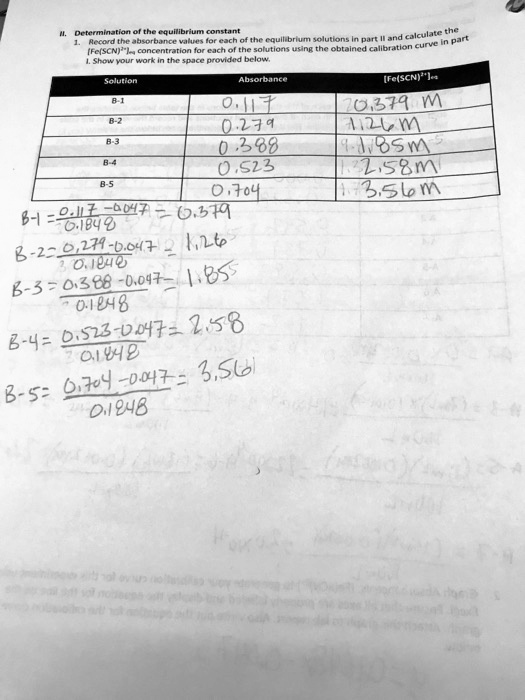 II. Determination of the equilibrium constant
1. Record the absorbance values for each of the equilibrium solutions in part II and calculate the
[Fe(SCN)²⁺]ₑq concentration for each of the solutions using the obtained calibration curve in part
I. Show your work in the space provided below.
Solution Absorbance [Fe(SCN)²⁺]ₑq
B-1 0.117 0.379 M
B-2 0.279 1.26 M
B-3 0.388 1.85 M
B-4 0.523 2.58 M
B-5 0.704 3.56 M
B-1 = 0.117 - 0.047 = 0.379
0.1848
B-2 = 0.279 - 0.047 = 1.26
0.1848
B-3 = 0.388 - 0.047 = 1.85
0.1848
B-4 = 0.523 - 0.047 = 2.58
0.1848
B-5 = 0.704 - 0.047 = 3.56
0.1848